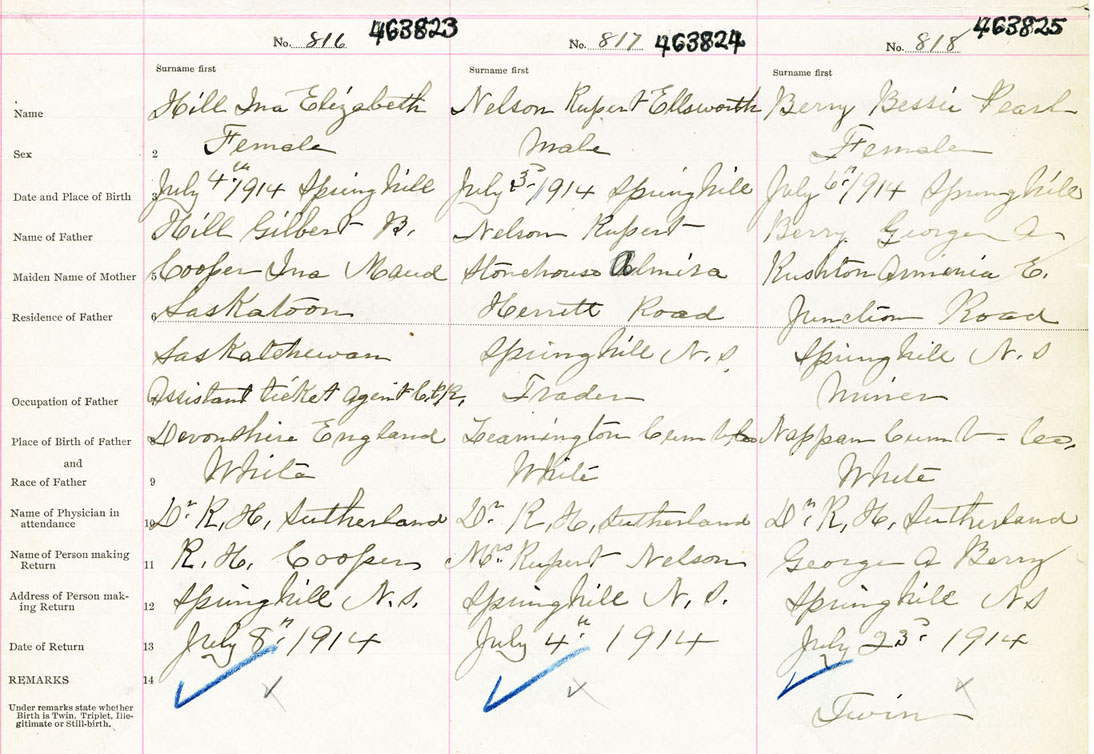 No. 816 463823 No. 817 463824 No. 818 463825
Surname first Surname first Surname first
Name Hill Ina Elizabeth Nelson Rupert Ellsworth Berry Bessie Pearl
Sex 2 Female Male Female
Date and Place of Birth 3 July 4th 1914 Springhill July 3d 1914 Springhill July 6th 1914 Springhill
Name of Father Hill Gilbert B. Nelson Rupert Berry George A
Maiden Name of Mother 5 Cooper Ina Maud Stonehouse Almira Rushton Armenia E.
Residence of Father 6 Saskatoon Herrett Road Junction Road
Saskatchewan Springhill N.S Springhill N.S
Occupation of Father Assistant ticket agent C.P.R. Trader Miner
Place of Birth of Father Devonshire England Leamington Cumb Co Nappan Cumb - Co.
and
Race of Father 9 White White White
Name of Physician in
attendance 10 Dr R, H, Sutherland Dr R, H, Sutherland Dr R, H, Sutherland
Name of Person making
Return 11 R. H. Cooper Mrs Rupert Nelson George A Berry
Address of Person mak-
ing Return 12 Springhill N.S. Springhill N.S. Springhill NS
Date of Return 13 July 8th 1914 July 4th 1914 July 23d 1914
REMARKS 14
Under remarks state whether
Birth is Twin, Triplet, Ille-
gitimate or Still-birth.
Twin